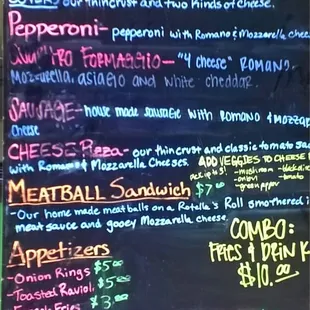 our thincrust and two kinds of cheese.
Pepperoni- pepperoni with Romano & Mozzarella chee
FORMAGGIO- "4 cheese" ROMANO,
MOZZARELLA, ASIAGO AND WHITE CHEDDAR.
SAUSAGE- house made sausage with ROMANO & MOZZAR
cheese
CHEESE Pizza- our thincrust and classic tomato sau
with Romano & Mozzarella Cheeses.
ADD VEGGIES TO CHEESE
pick up to 3!
-mushroom
-onion
-green pepper
-black oliv
-tomato
MEATBALL Sandwich $7.00
-Our home made meatballs on a Rotella's Roll smothered i
meat sauce and gooey Mozzarella cheese.
COMBO:
FRIES & DRINK
$10.00
Appetizers
-Onion Rings $5.00
-Toasted Ravioli $5.00
Fries $3.00